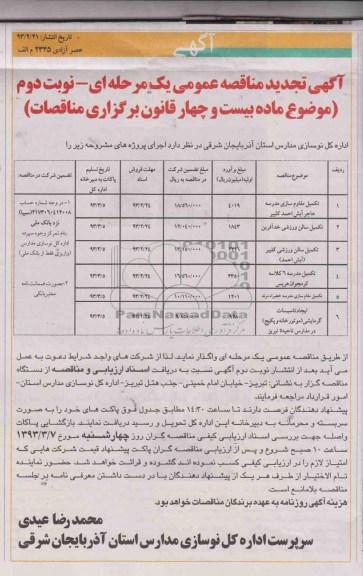 تاریخ انتشار: ۹۳/۲/۲۱
عصر آزادی ۲۳۴۵ م الف
آگهی
آگهی تجدید مناقصه عمومی یک مرحله ای – نوبت دوم
(موضوع ماده بیست و چهار قانون برگزاری مناقصات)
اداره کل نوسازی مدارس استان آذربایجان شرقی در نظر دارد اجرای پروژه های مشروحه زیر را
ردیف موضوع مناقصه مبلغ برآورد اولیه (میلیون ریال) مبلغ تضمین شرکت در مناقصه به ریال مهلت فروش اسناد تاریخ تسلیم پاکات به دبیرخانه اداره کل تضمین شرکت در مناقصه:
۱ تکمیل مقاوم سازی مدرسه ۴۰۱۹ ۹۳/۲/۲۴ ۹۳/۳/۵
۲ تکمیل سالن ورزشی خداآفرین ۱۸۴۳ ۹۳/۲/۲۴ ۹۳/۳/۵
۳ تکمیل سالن ورزشی کلیبر ۹۳/۲/۲۴ ۹۳/۳/۵
۴ تکمیل مدرسه ۶ کلاسه ۹۳/۲/۲۴ ۹۳/۳/۵
۵ تکمیل مقاوم سازی مدرسه ۹۳/۲/۲۴ ۹۳/۳/۵
۶ ایجاد تاسیسات گرمایشی (موتورخانه و پکیج)
۱- در وجه شماره حساب
نزد بانک ملی
اداره کل نوسازی مدارس
۲- بصورت ضمانت نامه
معتبر بانکی
ParsNamadData
از طریق مناقصه عمومی یک مرحله ای واگذار نماید. لذا از شرکت های واجد شرایط دعوت به عمل
می آید بعد از انتشار نوبت دوم آگهی نسبت به دریافت اسناد ارزیابی و مناقصه از دستگاه
مناقصه گزار به نشانی: تبریز- خیابان امام خمینی- جنب هتل تبریز- اداره کل نوسازی مدارس استان-
امور قرارداد مراجعه فرمایند.
پیشنهاد دهندگان فرصت دارند تا ساعت ۱۴:۳۰ مطابق جدول فوق پاکت های خود را به صورت
سربسته و محرمانه به دبیرخانه این اداره کل تحویل و رسید دریافت نمایند. بازگشایی پاکات
واصله جهت بررسی اسناد ارزیابی کیفی مناقصه گران روز چهارشنبه مورخ ۱۳۹۳/۳/۷
ساعت ۱۰ صبح شروع و پس از ارزیابی مناقصه گران پاکت پیشنهاد قیمت شرکت هایی که
امتیاز لازم را در ارزیابی کیفی کسب نموده اند گشوده و قرائت خواهد شد. حضور نماینده
تام الاختیار از طرف هر یک از پیشنهاد دهندگان با در دست داشتن معرفی نامه در جلسه
مناقصه بلامانع است.
هزینه آگهی روزنامه به عهده برندگان مناقصات خواهد بود.
محمدرضا عیدی
سرپرست اداره کل نوسازی مدارس استان آذربایجان شرقی